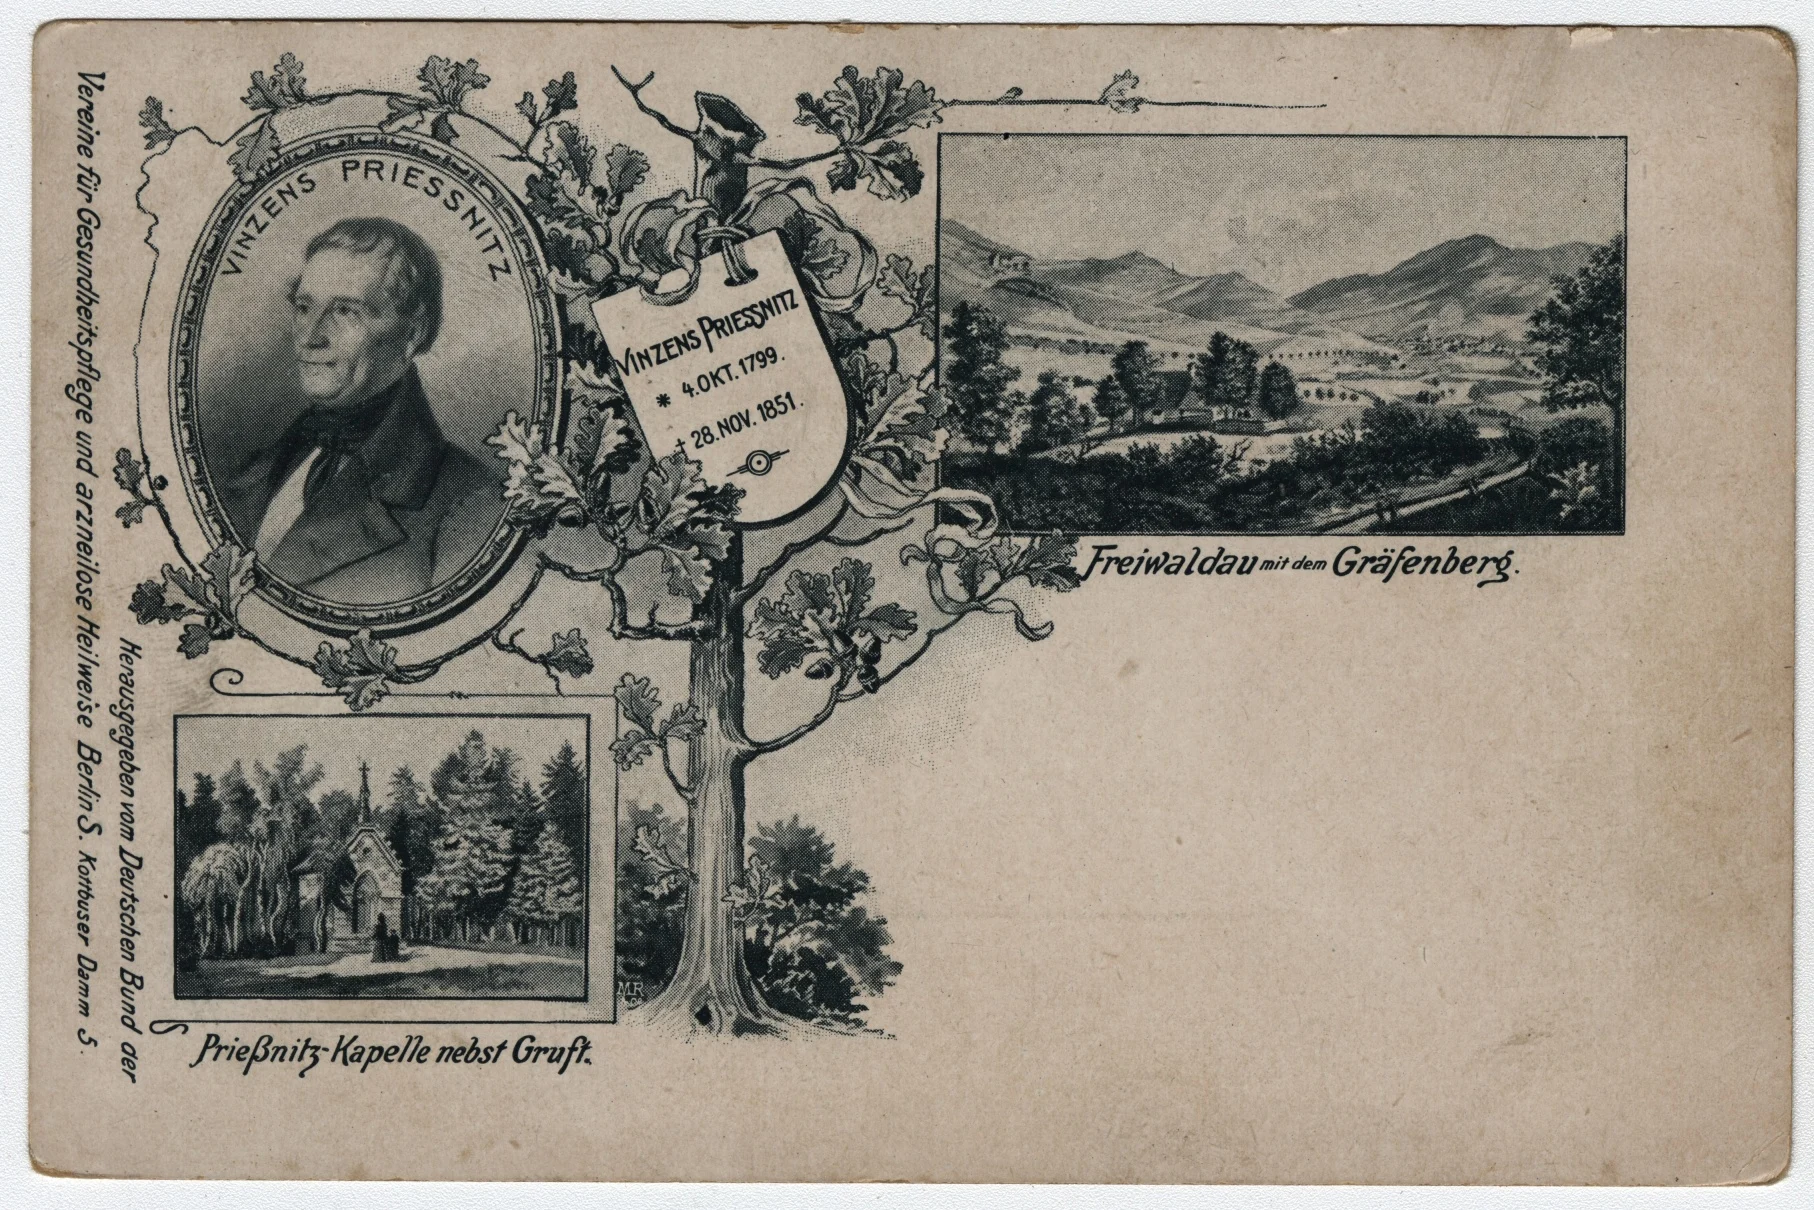 VINZENS PRIESSNITZ
VINZENS PRIESSNITZ
* 4. OKT. 1799.
† 28. NOV. 1851.
Freiwaldau mit dem Gräfenberg.
Prießnitz-Kapelle nebst Gruft.
MR
Herausgegeben vom Deutschen Bund der
Vereine für Gesundheitspflege und arzneilose Heilweise Berlin S. Kottbuser Damm 5.